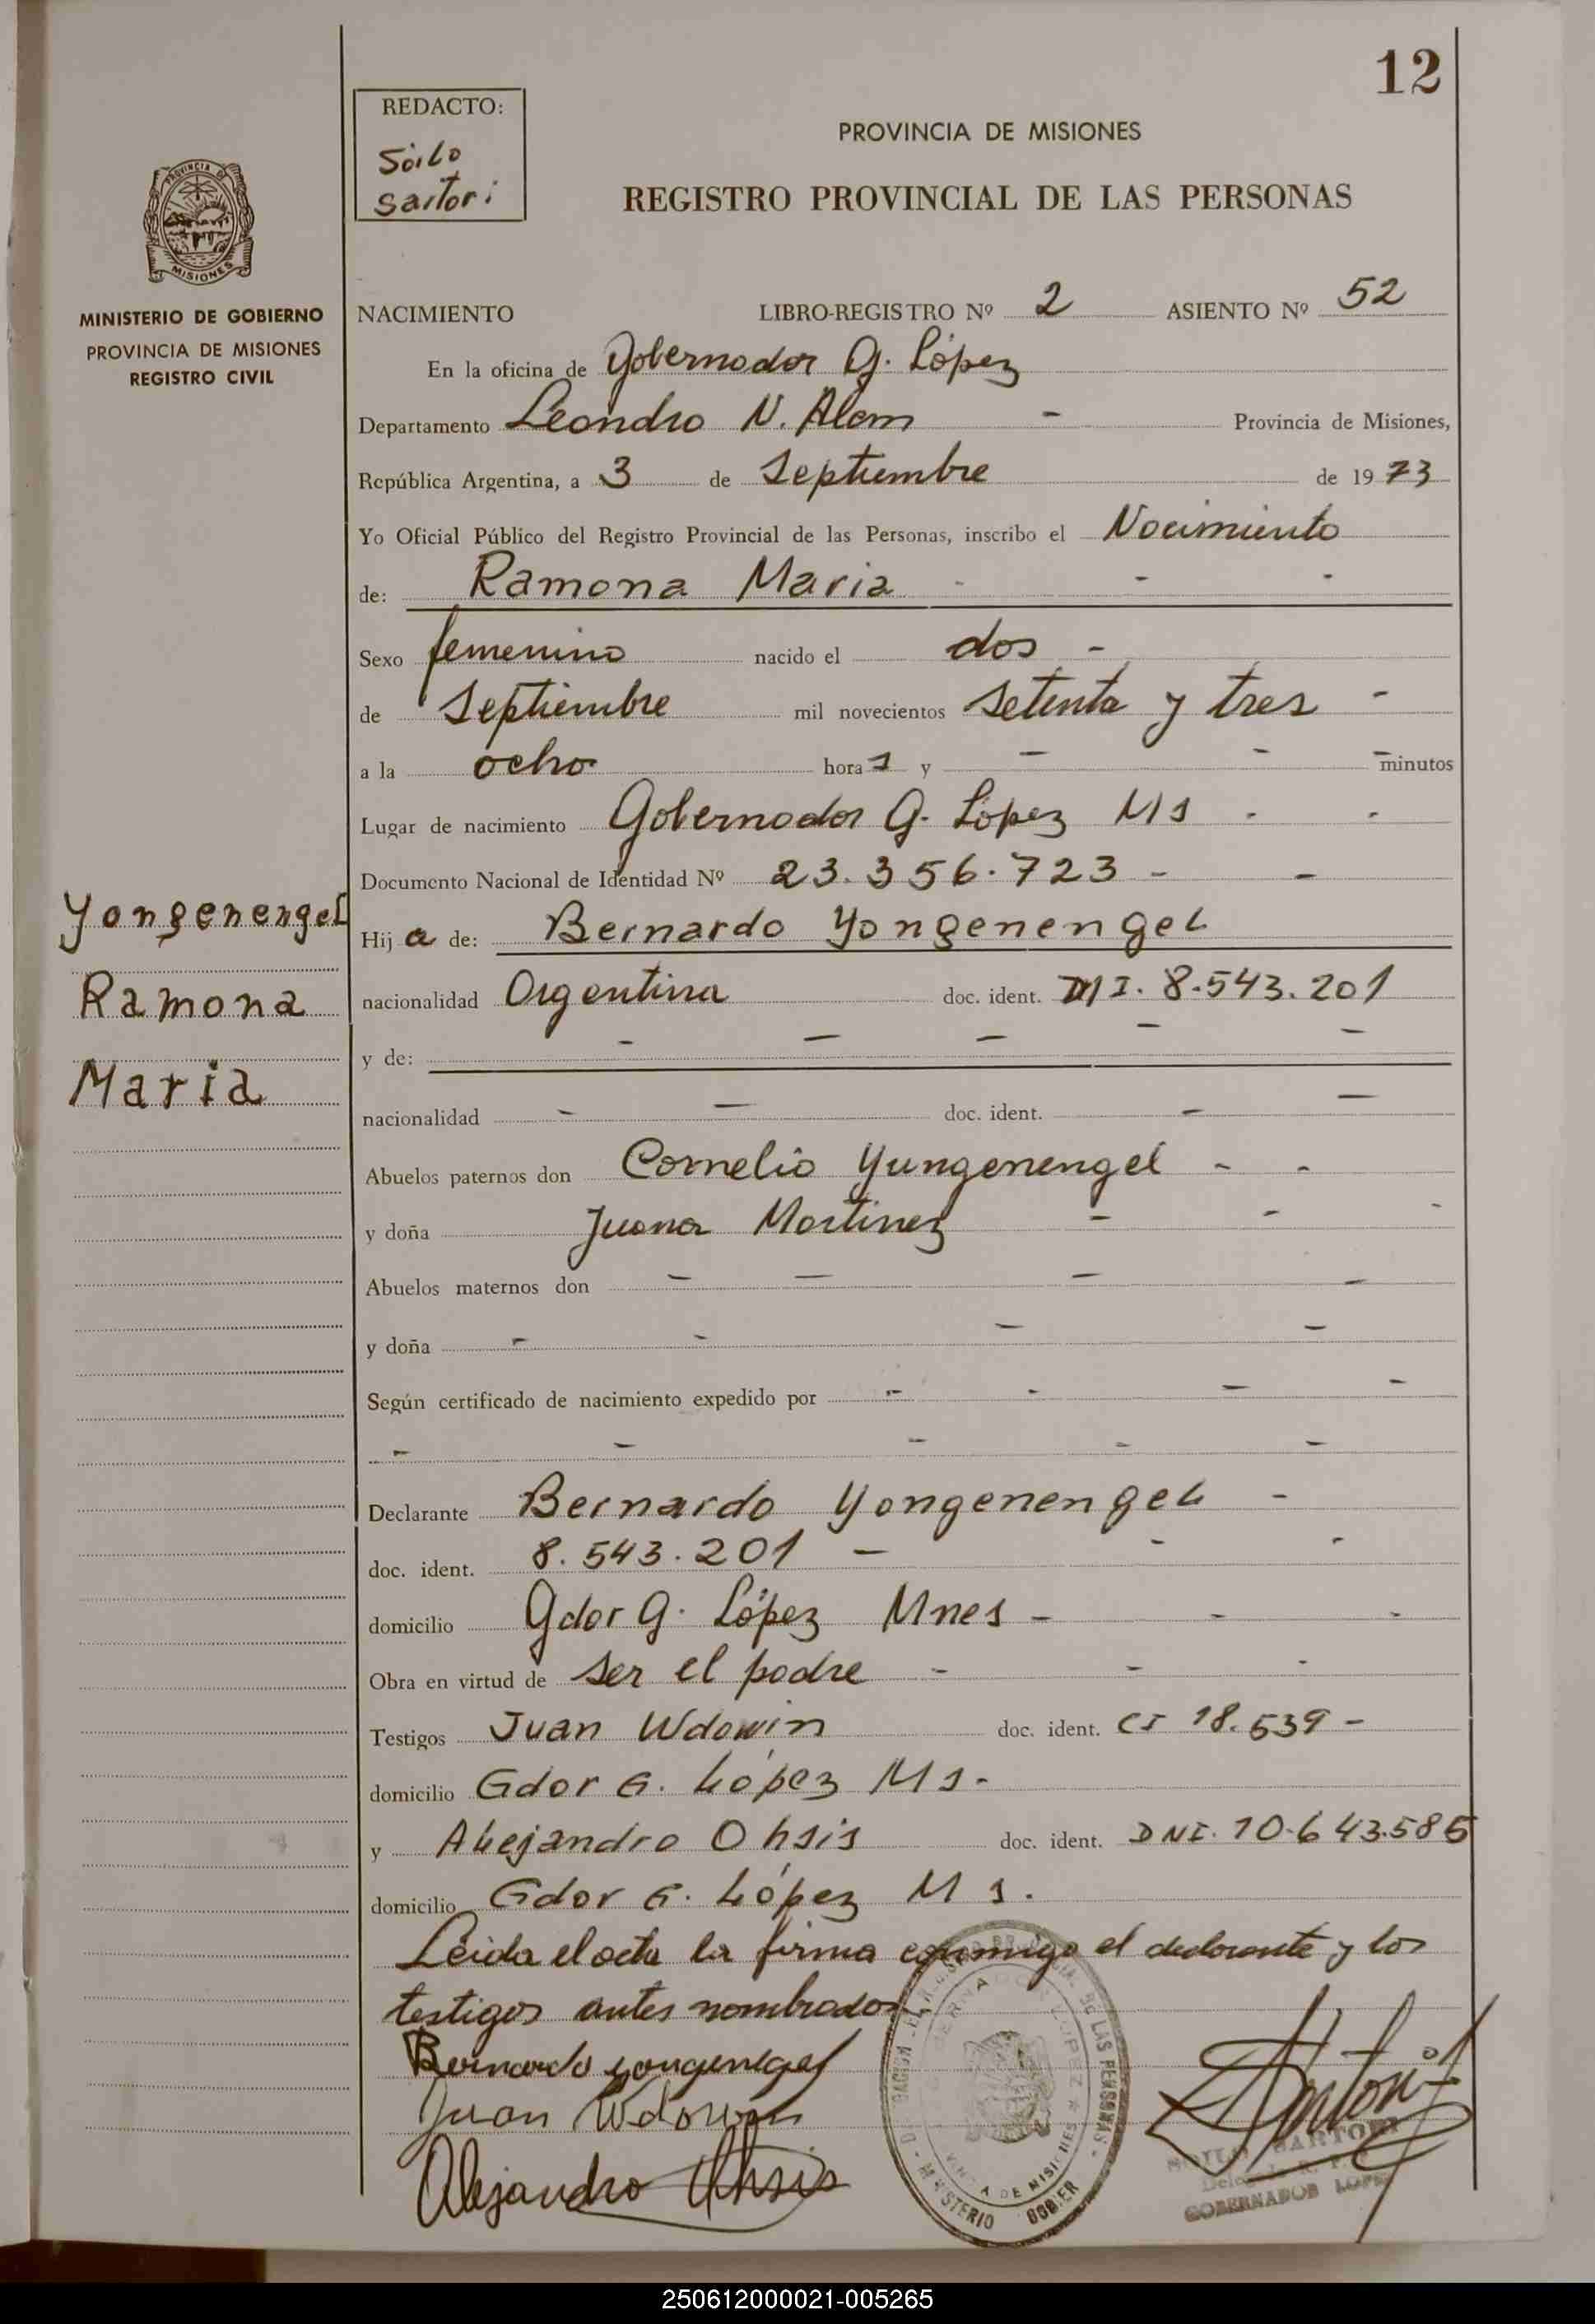 12
REDACTO:
Soilo
Sartori
PROVINCIA DE MISIONES
REGISTRO PROVINCIAL DE LAS PERSONAS
PROVINCIA DE
MISIONES
MINISTERIO DE GOBIERNO
PROVINCIA DE MISIONES
REGISTRO CIVIL
NACIMIENTO LIBRO-REGISTRO Nº 2 ASIENTO Nº 52
En la oficina de Gobernador G. López
Departamento Leandro N. Alem - Provincia de Misiones,
República Argentina, a 3 de Septiembre de 1973
Yo Oficial Público del Registro Provincial de las Personas, inscribo el Nacimiento
de: Ramona Maria - - -
Sexo femenino nacido el dos -
de Septiembre mil novecientos setenta y tres -
a la ocho horas y - - - minutos
Lugar de nacimiento Gobernador G. López Ms - -
Documento Nacional de Identidad Nº 23.356.723 - -
Yongenengel
Ramona
Maria
Hija de: Bernardo Yongenengel
nacionalidad Argentina doc. ident. DNI. 8.543.201
y de: - - - - -
nacionalidad - - doc. ident. - -
Abuelos paternos don Cornelio Yungenengel - -
y doña Juana Martinez - - -
Abuelos maternos don - - - -
y doña - - - -
Según certificado de nacimiento expedido por - - - -
- - - - -
Declarante Bernardo Yongenengel -
doc. ident. 8.543.201 - - -
domicilio Gdor G. López Mnes - - -
Obra en virtud de ser el padre - - -
Testigos Juan Wdowin doc. ident. CI 18.539 -
domicilio Gdor G. López Ms-
y Alejandro Ohsis doc. ident. DNI. 10.643.585
domicilio Gdor G. López Ms.
Leida el acta la firma conmigo el declarante y los
testigos antes nombrados
Bernardo yongenegel
Juan Wdowin
Alejandro Ohsis
LOPEZ
DE LAS PERSONAS
DE MISIONES
SARTORI
GOBERNADOR LOPEZ
250612000021-005265